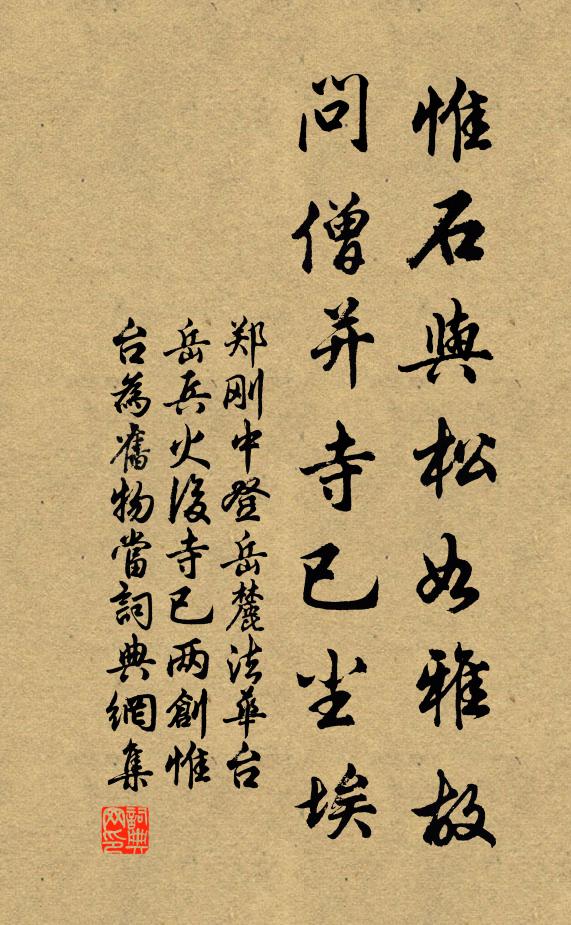 惟石與松如雅故
問僧并寺已尘埃
郑刚中登岳麓法華台
岳兵火後寺已两創惟
台為舊物當詞典網集
詞典网印